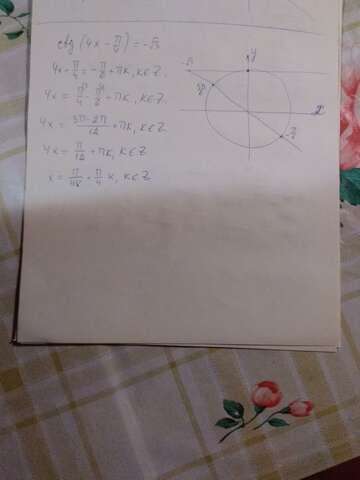 ctg (4x - π/4) = -√3
4x - π/4 = -π/6 + πk, k∈Z.
4x = π/4 - π/6 + πk, k∈Z.
4x = 3π-2π/12 + πk, k∈Z
4x = π/12 + πk, k∈Z
x = π/48 + π/4 k, k∈Z
y
x